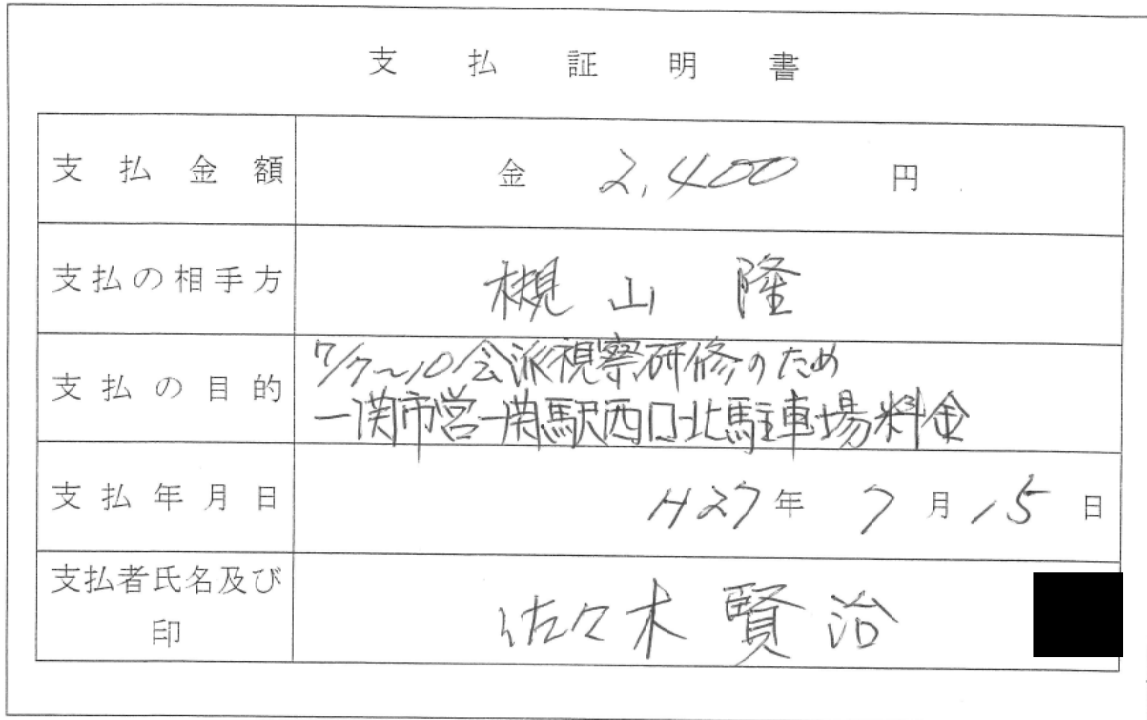 支払証明書
支払金額 金 2,400 円
支払の相手方 槻山 隆
支払の目的 7/7～10 会派視察研修のため
一関市営一関駅西口北駐車場料金
支払年月日 H27年 7月15日
支払者氏名及び 佐々木 賢治
印